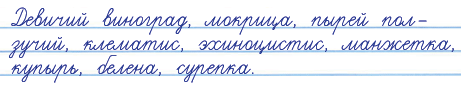 Девичий виноград, мокрица, пырей пол-
зучий, клематис, эхиноцистис, манжетка,
купырь, белена, сурепка.